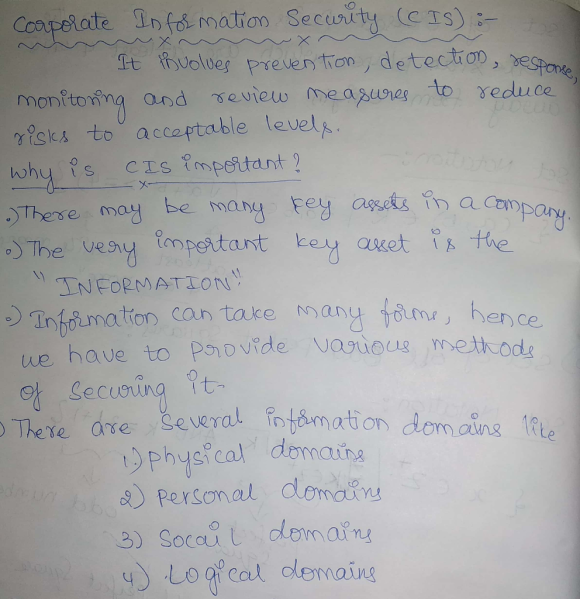 Corporate Information Security (CIS) :-
It involves prevention, detection, response,
monitoring and review measures to reduce
risks to acceptable levels.
Why is CIS important?
•) There may be many key assets in a company.
•) The very important key asset is the
"INFORMATION".
•) Information can take many forms, hence
we have to provide various methods
of securing it-
•) There are several information domains like
1.) physical domains
2) personal domains
3) Socail domains
4) Logical domains